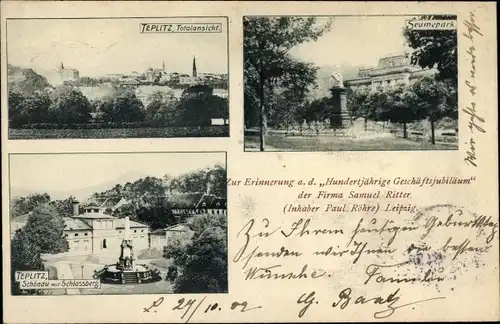 TEPLITZ, Totalansicht.
Seumepark.
Zur Erinnerung a. d. „Hundertjährige Geschäftsjubiläum"
der Firma Samuel Ritter
(Inhaber Paul Röhr) Leipzig.
TEPLITZ,
Schönau mit Schlossberg.
Zu Ihrem heutigen Geburtstag
senden wir Ihnen die besten
Wünsche. Familie
G. Baatz
L. 27/10. 02